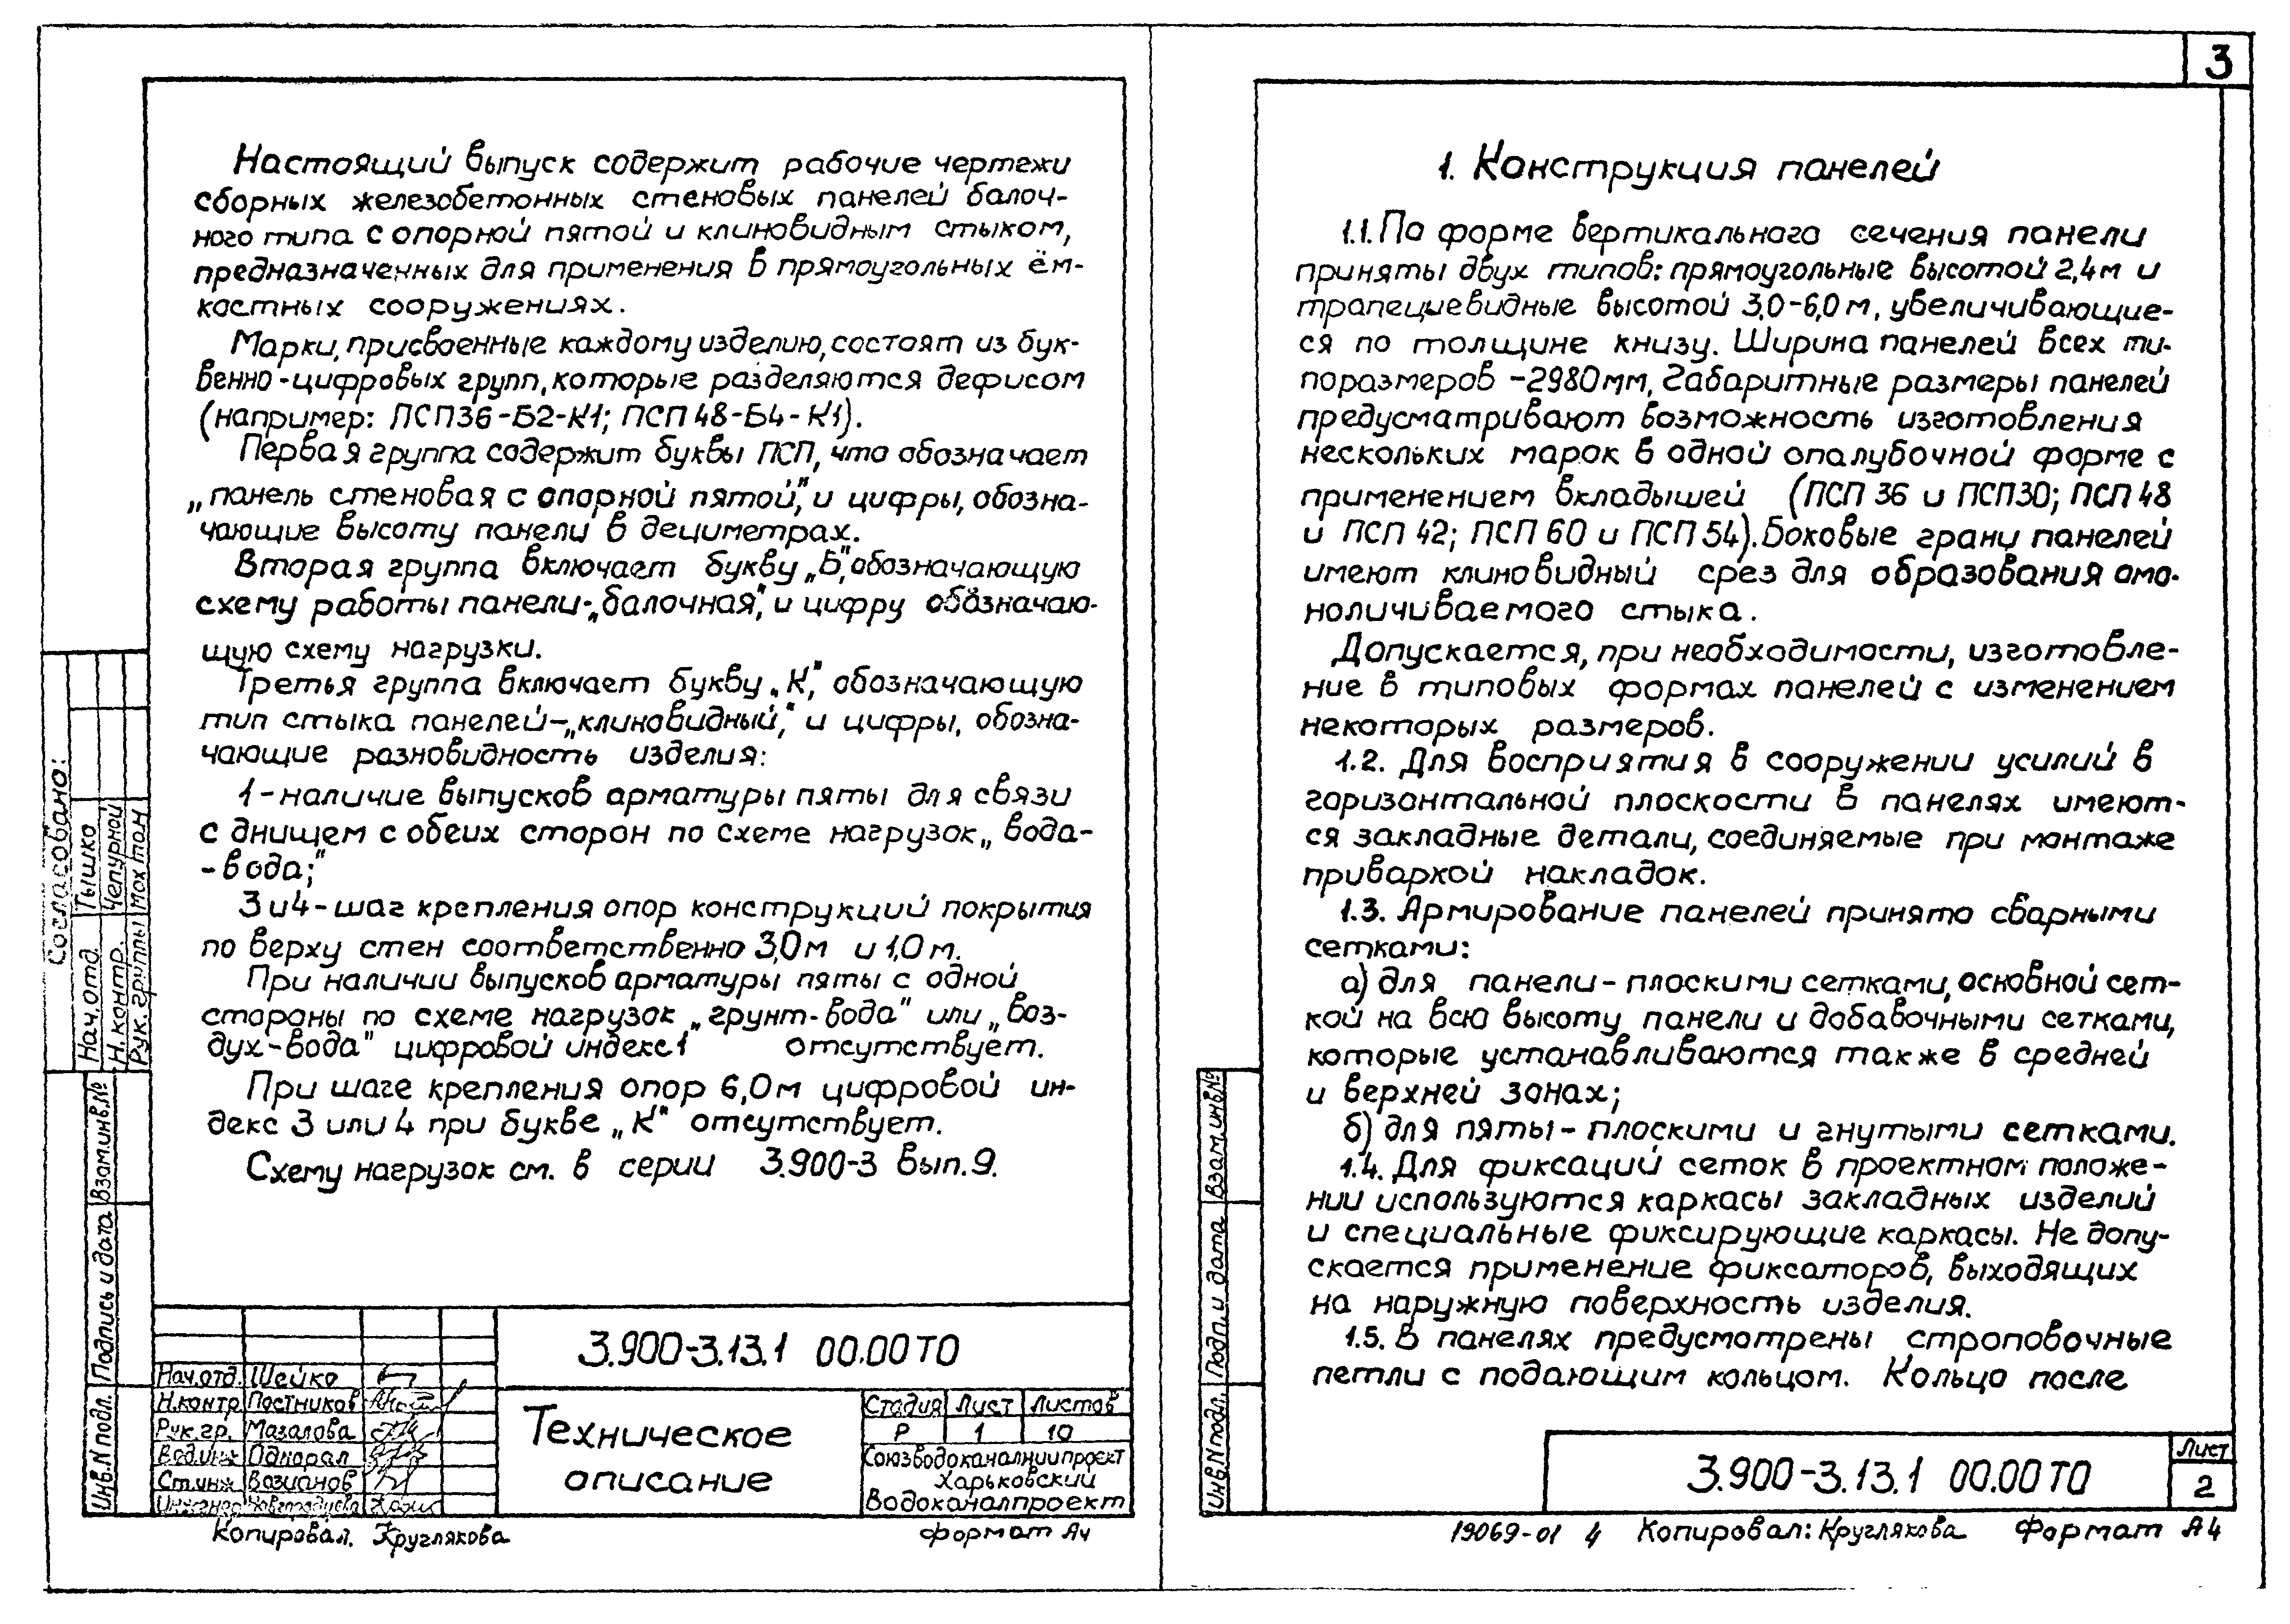 3
Настоящий выпуск содержит рабочие чертежи
сборных железобетонных стеновых панелей балоч-
ного типа с опорной пятой и клиновидным стыком,
предназначенных для применения в прямоугольных ём-
костных сооружениях.
Марки, присвоенные каждому изделию, состоят из бук-
венно-цифровых групп, которые разделяются дефисом
(например: ПСП36-Б2-К1; ПСП48-Б4-К1).
Первая группа содержит буквы ПСП, что обозначает
„панель стеновая с опорной пятой", и цифры, обозна-
чающие высоту панели в дециметрах.
Вторая группа включает букву „Б", обозначающую
схему работы панели-„балочная", и цифру обозначаю-
щую схему нагрузки.
Третья группа включает букву „К", обозначающую
тип стыка панелей-„клиновидный", и цифры, обозна-
чающие разновидность изделия:
1-наличие выпусков арматуры пяты для связи
с днищем с обеих сторон по схеме нагрузок „вода-
-вода;"
3 и 4-шаг крепления опор конструкций покрытия
по верху стен соответственно 3,0м и 1,0м.
При наличии выпусков арматуры пяты с одной
стороны по схеме нагрузок „грунт-вода" или „воз-
дух-вода" цифровой индекс 1 отсутствует.
При шаге крепления опор 6,0м цифровой ин-
декс 3 или 4 при букве „К" отсутствует.
Схему нагрузок см. в серии 3.900-3 вып.9.
Согласовано:
Нач.отд. Тышко
Н.контр. Чепурной
Рук.группы Мохтон
Взам.инв.№
Подпись и дата
Инв.N подл.
3.900-3.13.1 00.00ТО
Нач.отд. Шейко
Н.контр. Постников
Рук.гр. Мазалова
Вед.инж Однорал
Ст.инж Возианов
Инженер
Техническое
описание
Стадия Лист Листов
Р 1 10
Союзводоканалниипроект
Харьковский
Водоканалпроект
Копировал. Круглякова
формат А4
1. Конструкция панелей
1.1. По форме вертикального сечения панели
приняты двух типов: прямоугольные высотой 2,4м и
трапециевидные высотой 3,0-6,0м, увеличивающие-
ся по толщине книзу. Ширина панелей всех ти-
поразмеров -2980мм, Габаритные размеры панелей
предусматривают возможность изготовления
нескольких марок в одной опалубочной форме с
применением вкладышей (ПСП 36 и ПСП30; ПСП 48
и ПСП 42; ПСП 60 и ПСП 54). Боковые грани панелей
имеют клиновидный срез для образования омо-
ноличиваемого стыка.
Допускается, при необходимости, изготовле-
ние в типовых формах панелей с изменением
некоторых размеров.
1.2. Для восприятия в сооружении усилий в
горизонтальной плоскости в панелях имеют-
ся закладные детали, соединяемые при монтаже
приваркой накладок.
1.3. Армирование панелей принято сварными
сетками:
а) для панели-плоскими сетками, основной сет-
кой на всю высоту панели и добавочными сетками,
которые устанавливаются также в средней
и верхней зонах;
б) для пяты-плоскими и гнутыми сетками.
1.4. Для фиксаций сеток в проектном положе-
нии используются каркасы закладных изделий
и специальные фиксирующие каркасы. Не допу-
скается применение фиксаторов, выходящих
на наружную поверхность изделия.
1.5. В панелях предусмотрены строповочные
петли с подающим кольцом. Кольцо после
Взам.инв№
Подп. и дата
Инв.N подл.
3.900-3.13.1 00.00ТО
Лист
2
19069-01 4 Копировал: Круглякова Формат А4